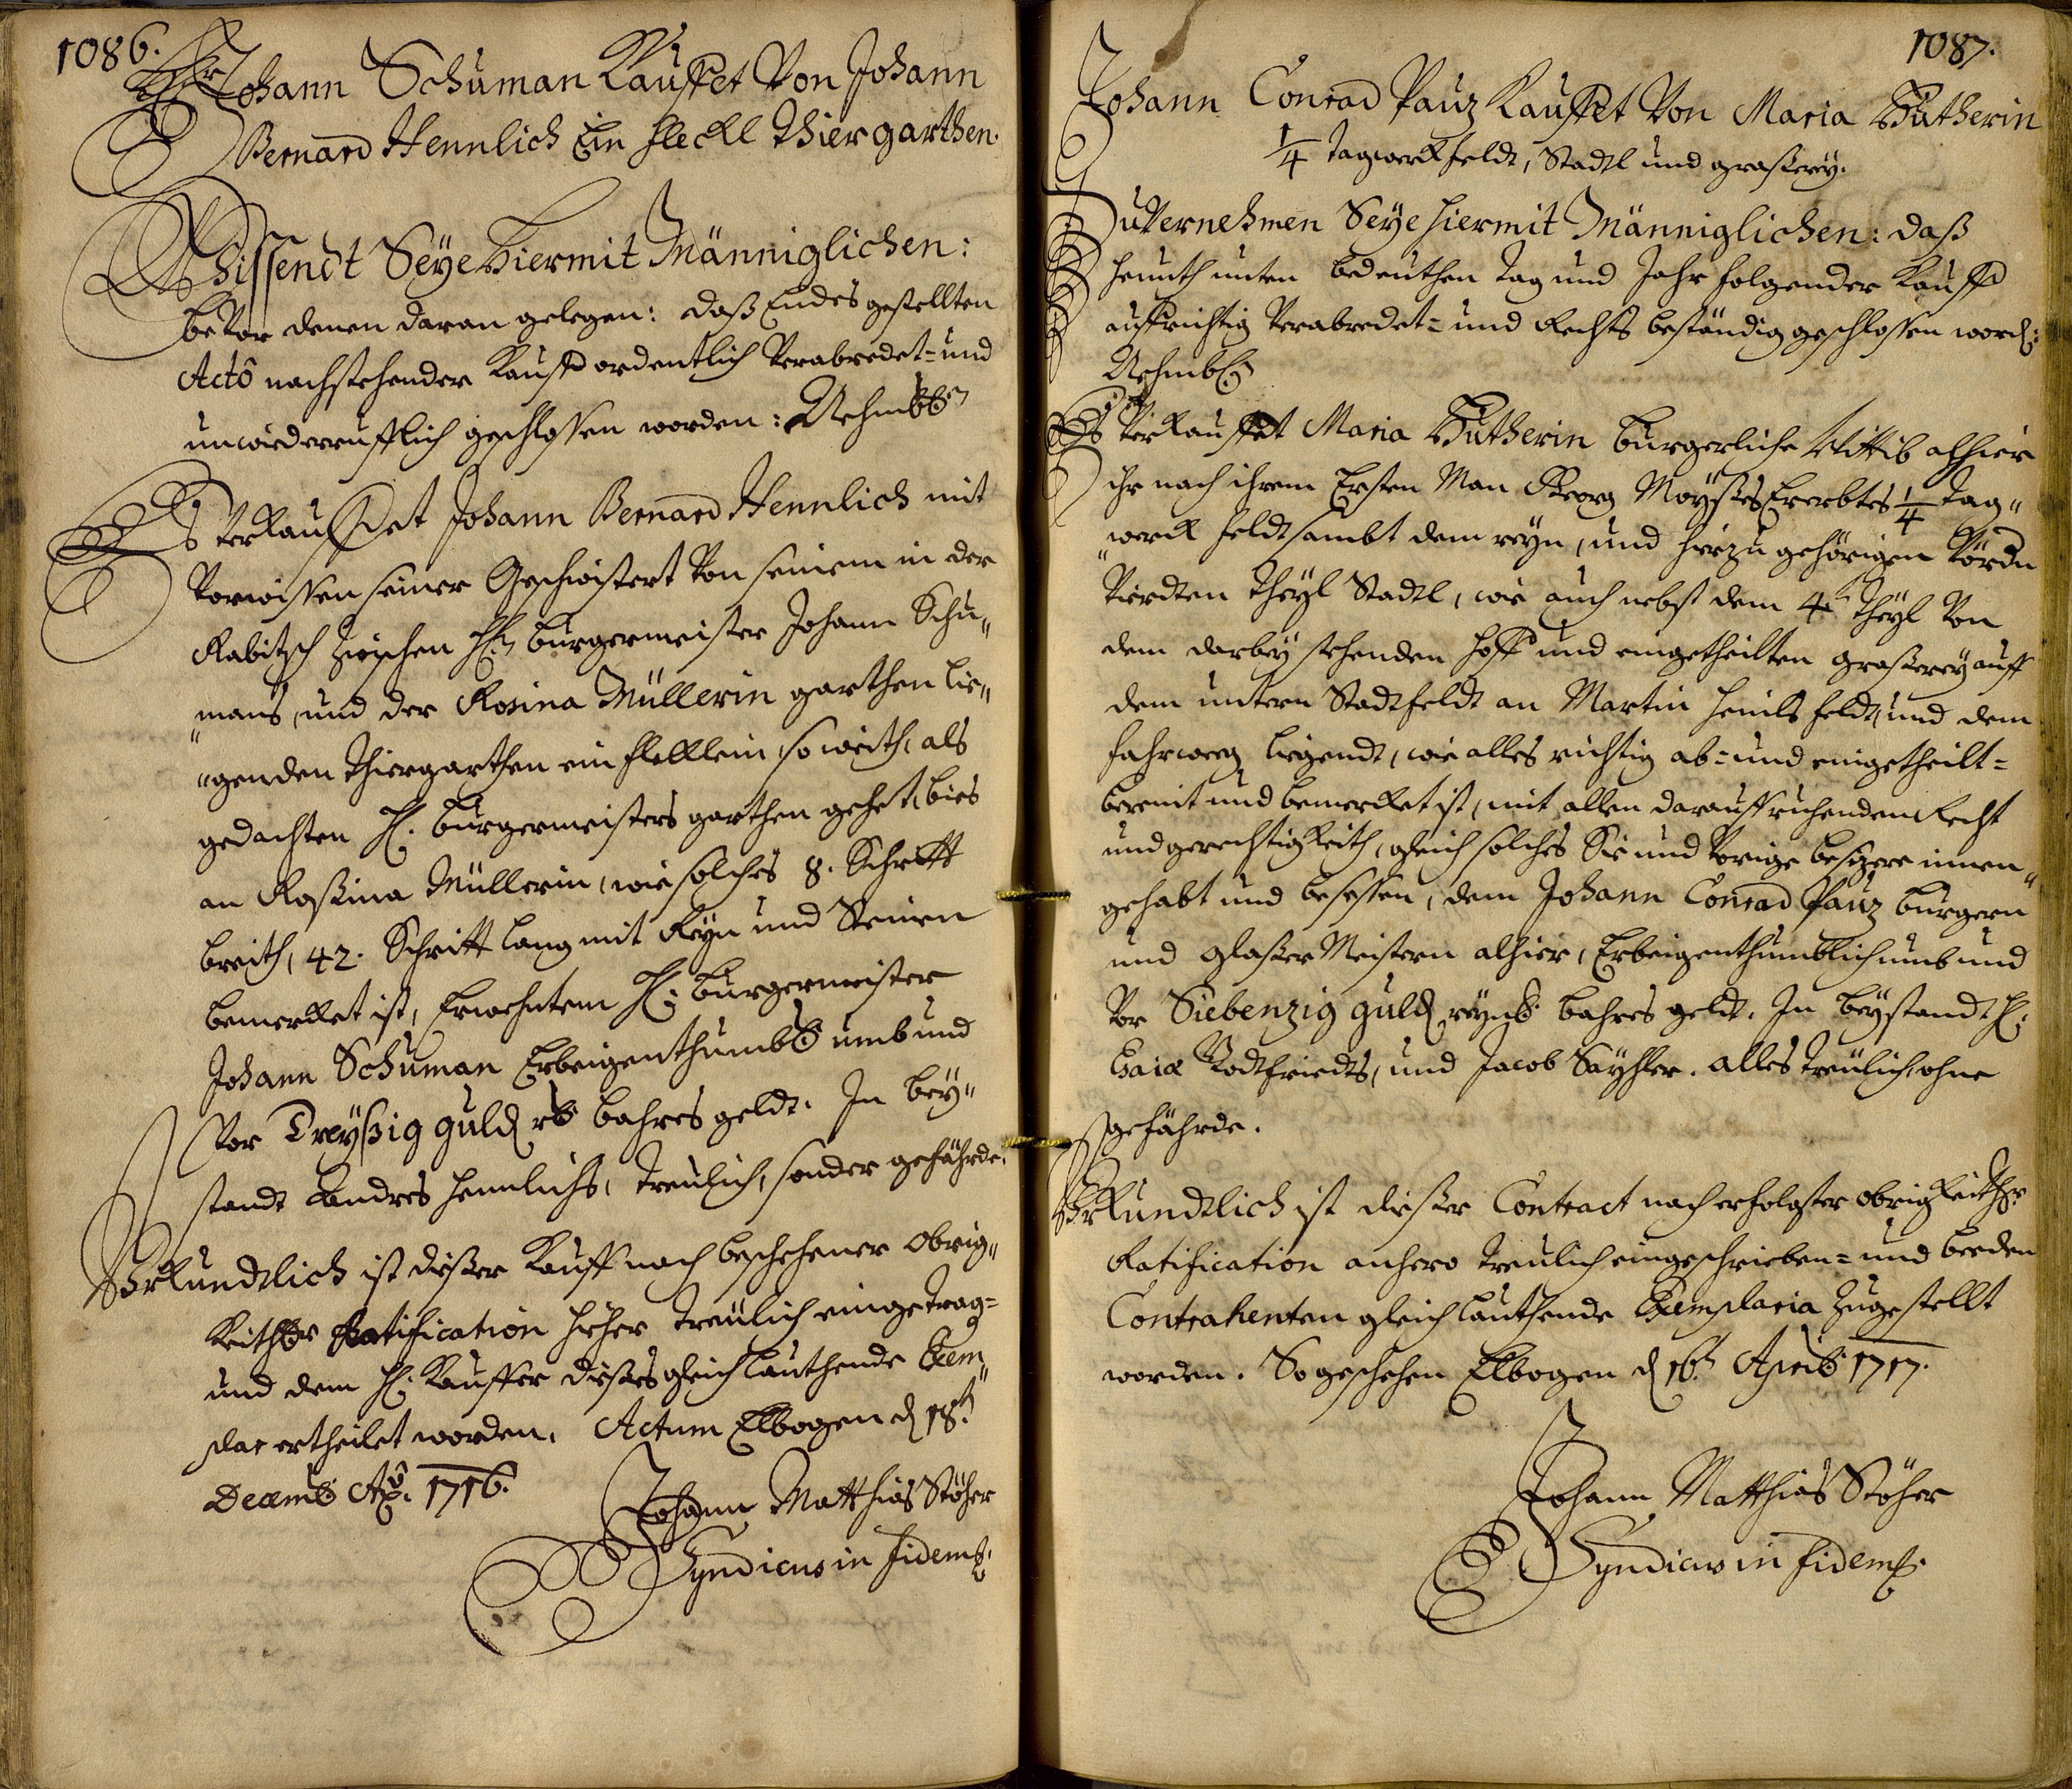 1086.
Hr: Johann Schuman Kauffet Von Johann
Bernard Hennlich Ein fleckl Thiergarthen.
Wissendt Seye hiermit Männiglichen:
bevor denen daran gelegen: daß Endes gestellten
Actô nachstehender Kauff ordentlich verabredet= und
unwiederrufflich geschlossen worden: Nehmbl:
Es verkauffet Johann Bernard Hennlich mit
Vorwissen seiner Geschwistert von seinem in der
Rabitsch zwischen H: burgermeister Johann Schu„
„mans, und der Rosina Müllerin garthen lie„
„genden Thiergarthen ein flecklein, so weith, als
gedachten H: burgermeisters garthen gehet, bies
an Rosina Müllerin, wie solches 8. Schritt
breith, 42. Schritt lang mit Reyn und Steinen
bemercket ist, Erwehntem H: burgermeister
Johann Schuman Erbeigenthumbl: umb und
vor Dreyßig guld: rl: bahres geldt. In bey„
standt Andres Hennlichs, treulich, sonder gefährde.
Uhrkundtlich ist dießer Kauff nach beschehener obrig„
keithl: Ratification hieher treülich eingetrag=
und dem H: Kauffer dießes gleichlauthende Exem„
plar ertheilet worden. Actum Elbogen d: 18t:
Decemb: Aô: 1716.
Johann Matthias Stöhr
Syndicus in fidem.
1087.
Johann Conrad Pauz Kauffet Von Maria Hutherin
1/4 tagwerk feldt, Stadl und graßerey.
Zu Vernehmen Seye hiermit Männiglichen: daß
heunth unten bedeuthen Tag und Jahr folgender Kauff
auffrichtig verabredet= und Rechts beständig geschlossen word:
Nehmbl:
Es Verkauffet Maria Hutherin burgerliche Wittib alhier
ihr nach ihrem Ersten Man Georg Moyßes Ererbtes 1/4 tag„
„werck feldt sambt dem reyn, und hierzu gehörigen vördn
Vierdten Theyl Stadl, wie auch nebst dem 4t: Theyl von
dem darbey stehenden Hoff und eingetheilten graßerey auff
dem untern Stadtfeldt an Martin Heinls feldt, und dem
fahrweg liegendt, wie alles richtig ab= und eingetheilt=
bereint und bemercket ist, mit allen darauff ruhenden Recht
und gerechtigkeith, gleich solches Sie und vorige besizere innen„
gehabt und besessen, dem Johann Conrad Pauz burgern
und glaßer Meistern alhier, Erbeigenthumblich umb und
vor Siebenzig guld: reynl: bahres geldt. In beystandt H:
Esaiæ Gottfriedts, und Jacob Sayhler. alles treulich, ohne
gefährde.
Uhrkundtlich ist dießer Contract nach erfolgter obrigkeithl:
Ratification anhero treulich eingeschrieben= und beeden
Contrahenten gleich lauthende Exemplaria zugestellt
worden. So geschehen Elbogen d: 16t: Aprilis 1717.
Johann Matthias Stöhr
Syndicus in fidem.